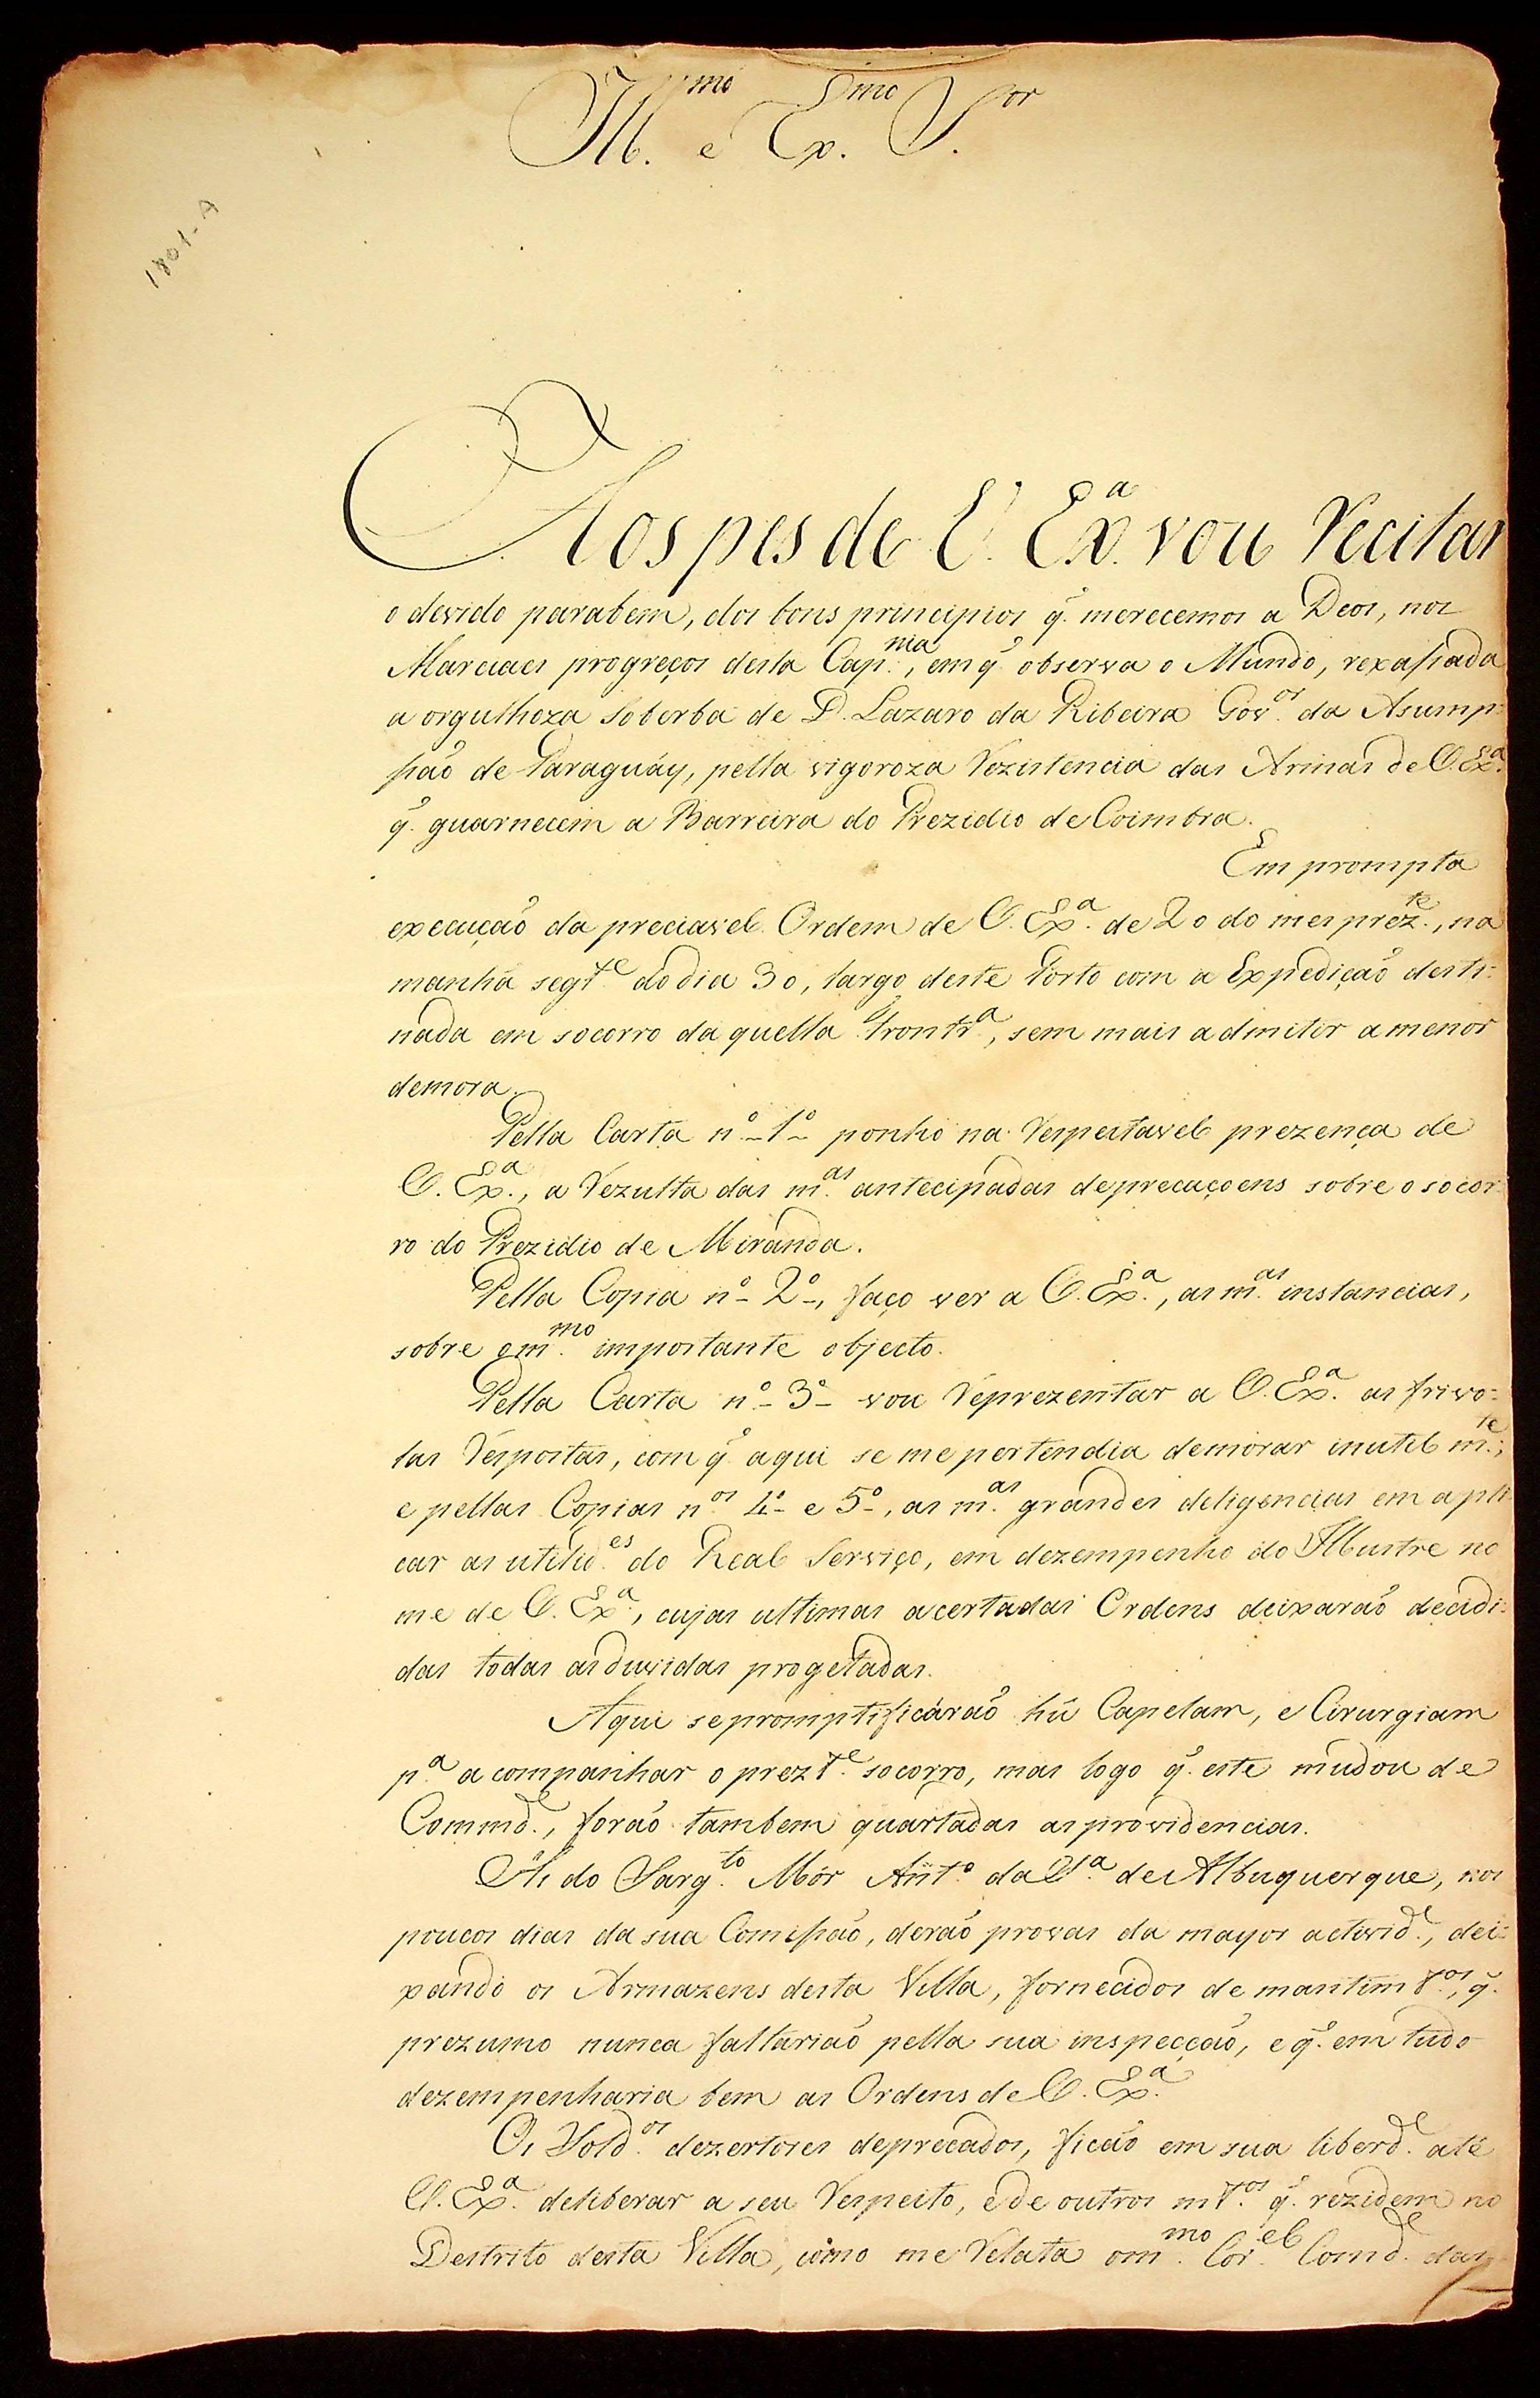 Ill.mo e Ex.mo S.or
1801-A
Aos pes de V. Ex.a vou recitar
o devido parabem, dos bons principios q̃. merecemos a Deos, nos
Marciaes progreços desta Cap.nia, em q̃ observa o Mundo, rexassada
a orgulhoza soberba de D. Lazaro da Ribeira Gov.or da Asump-
são de Paraguáy, pella vigoroza rezistencia das Armas de V. Ex.a
q̃. guarnecem a Barreira do Prezidio de Coimbra.
Em prompta
execução da preciavel Ordem de V. Ex.a de 20 do mes prez.te, na
manhã seg.te do dia 30, largo deste Porto com a Expedição desti-
nada em socorro da quella Frontr.a, sem mais admitir a menor
demora.
Pella Carta n.o 1.o ponho na respeitavel prezença de
V. Ex.a, a rezulta das m.as antecipadas deprecaçoens sobre o socor-
ro do Prezidio de Miranda.
Pella Copia n.o 2.o, faço ver a V. Ex.a, as m.as instancias,
sobre o m.mo importante objecto.
Pella Carta n.o 3.o vou reprezentar a V. Ex.a as frivo-
las respostas, com q̃ aqui se me pertendia demorar inutilm.te,
e pellas Copias n.os 4.o e 5.o, as m.as grandes deligencias em apli-
car as utilid.es do Real Serviço, em dezempenho do Illustre no
me de V. Ex.a, cujas ultimas acertadas Ordens deixarão decidi-
das todas as duvidas progetadas.
Aqui se promptificárão hũ Capelam, e Cirurgiam
p.a acompanhar o prez.te socorro, mas logo q̃. este mudou de
Commd.e, forão tambem quartadas as providencias.
As do Sarg.to Mór Ant.o da S.a de Albuquerque, nos
poucos dias da sua Comissão, derão provas da mayor activid.e, dei-
xando os Armazens desta Villa, fornecidos de mantim.tos, q̃.
prezumo nunca faltarião pella sua inspecção, e q̃. em tudo
dezempenharia bem as Ordens de V. Ex.a
Os Sold.os dezertores deprecados, ficão em sua liberd.e até
V. Ex.a deliberar a seu respeito, e de outros m.tos q̃. rezidem no
Destrito desta Villa, como me relata o m.mo Cor.el Comd.e das